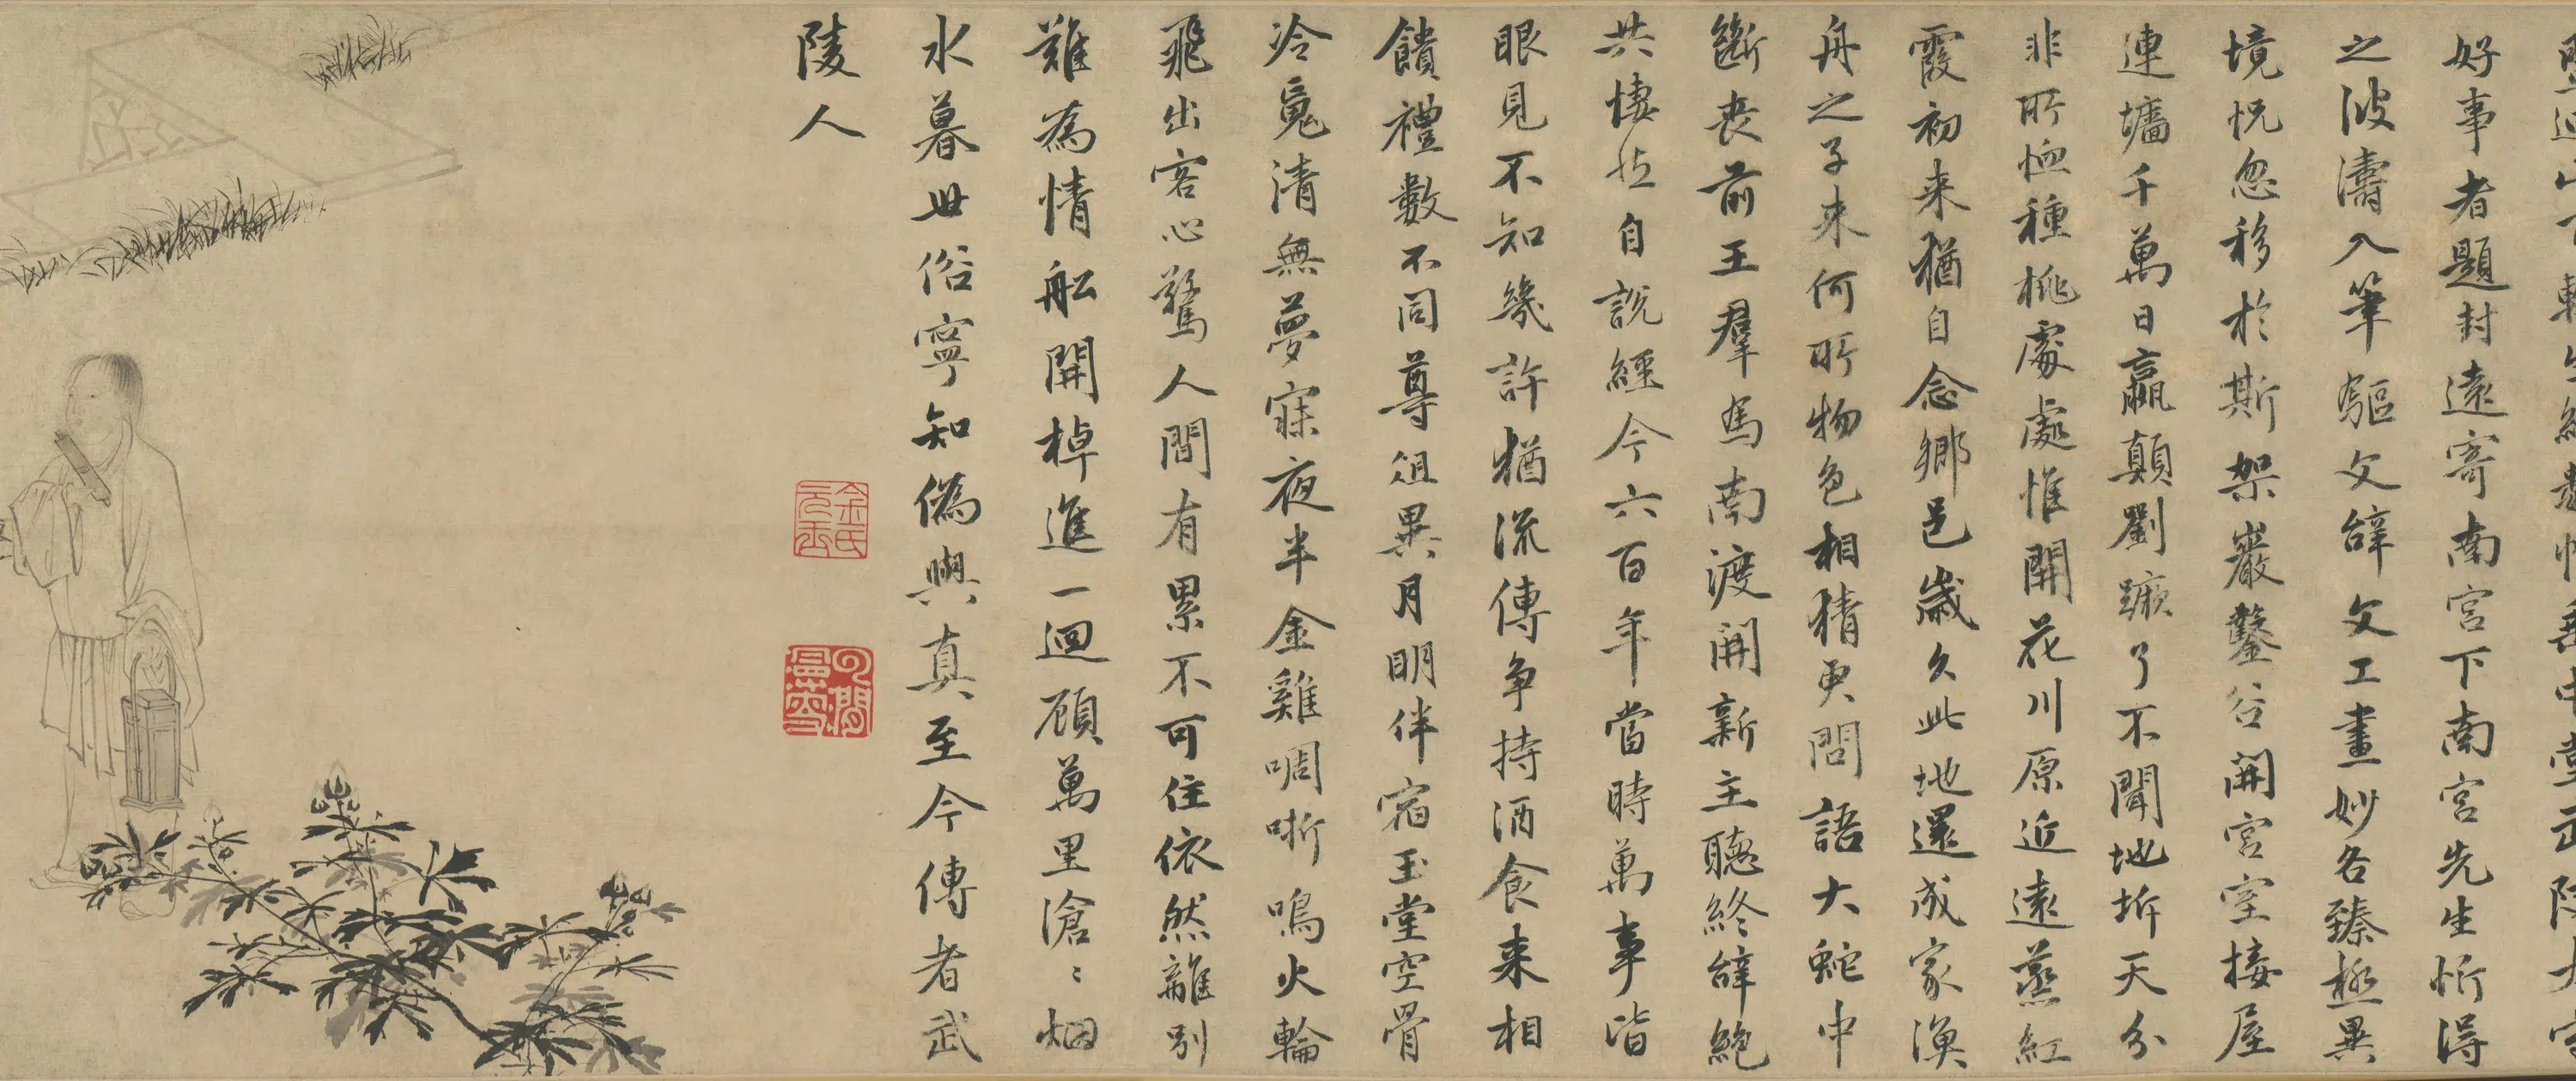 好事者題封遠寄南宮下南宮先生忻得
之波濤入筆驅文辭文工畫妙各臻極異
境怳忽移於斯架巖鑿谷開宮室接屋
連墻千萬日嬴顛劉蹶了不聞地坼天分
非所恤種桃處處惟開花川原近遠蒸紅
霞初来猶自念鄉邑歲久此地還成家漁
舟之子来何所物色相猜更問語大蛇中
斷喪前王羣馬南渡開新主聽終辭絕
共悽然自說經今六百年當時萬事皆
眼見不知幾許猶流傳争持酒食来相
饋禮數不同尊俎異月明伴宿玉堂空骨
冷䰟清無夢寐夜半金雞啁哳鳴火輪
飛出客心驚人間有累不可住依然離別
難為情舩開棹進一迴顧萬里滄〻烟
水暮世俗寧知偽與真至今傳者武
陵人
金氏元玉